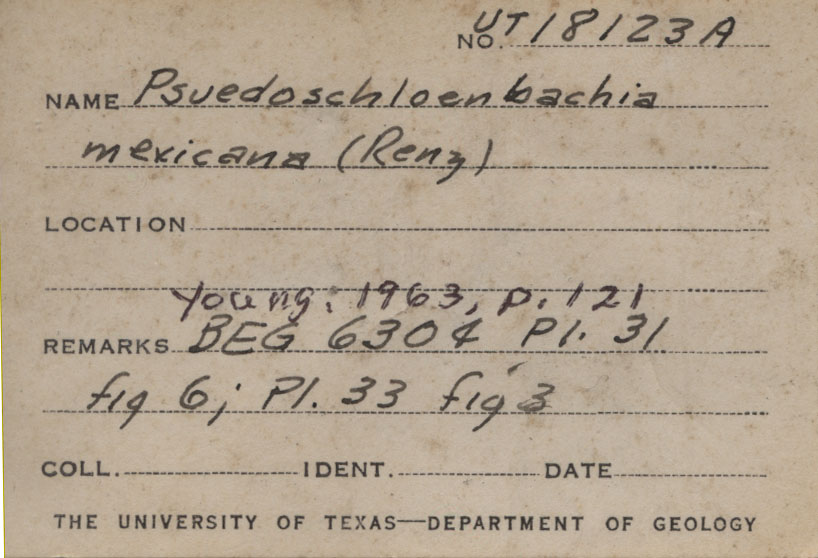 NO. UT18123A
NAME Psuedoschloenbachia
mexicana (Renz)
LOCATION
Young, 1963, p. 121
REMARKS BEG 6304 Pl. 31
fig 6; Pl. 33 fig 3
COLL. IDENT. DATE
THE UNIVERSITY OF TEXAS—DEPARTMENT OF GEOLOGY